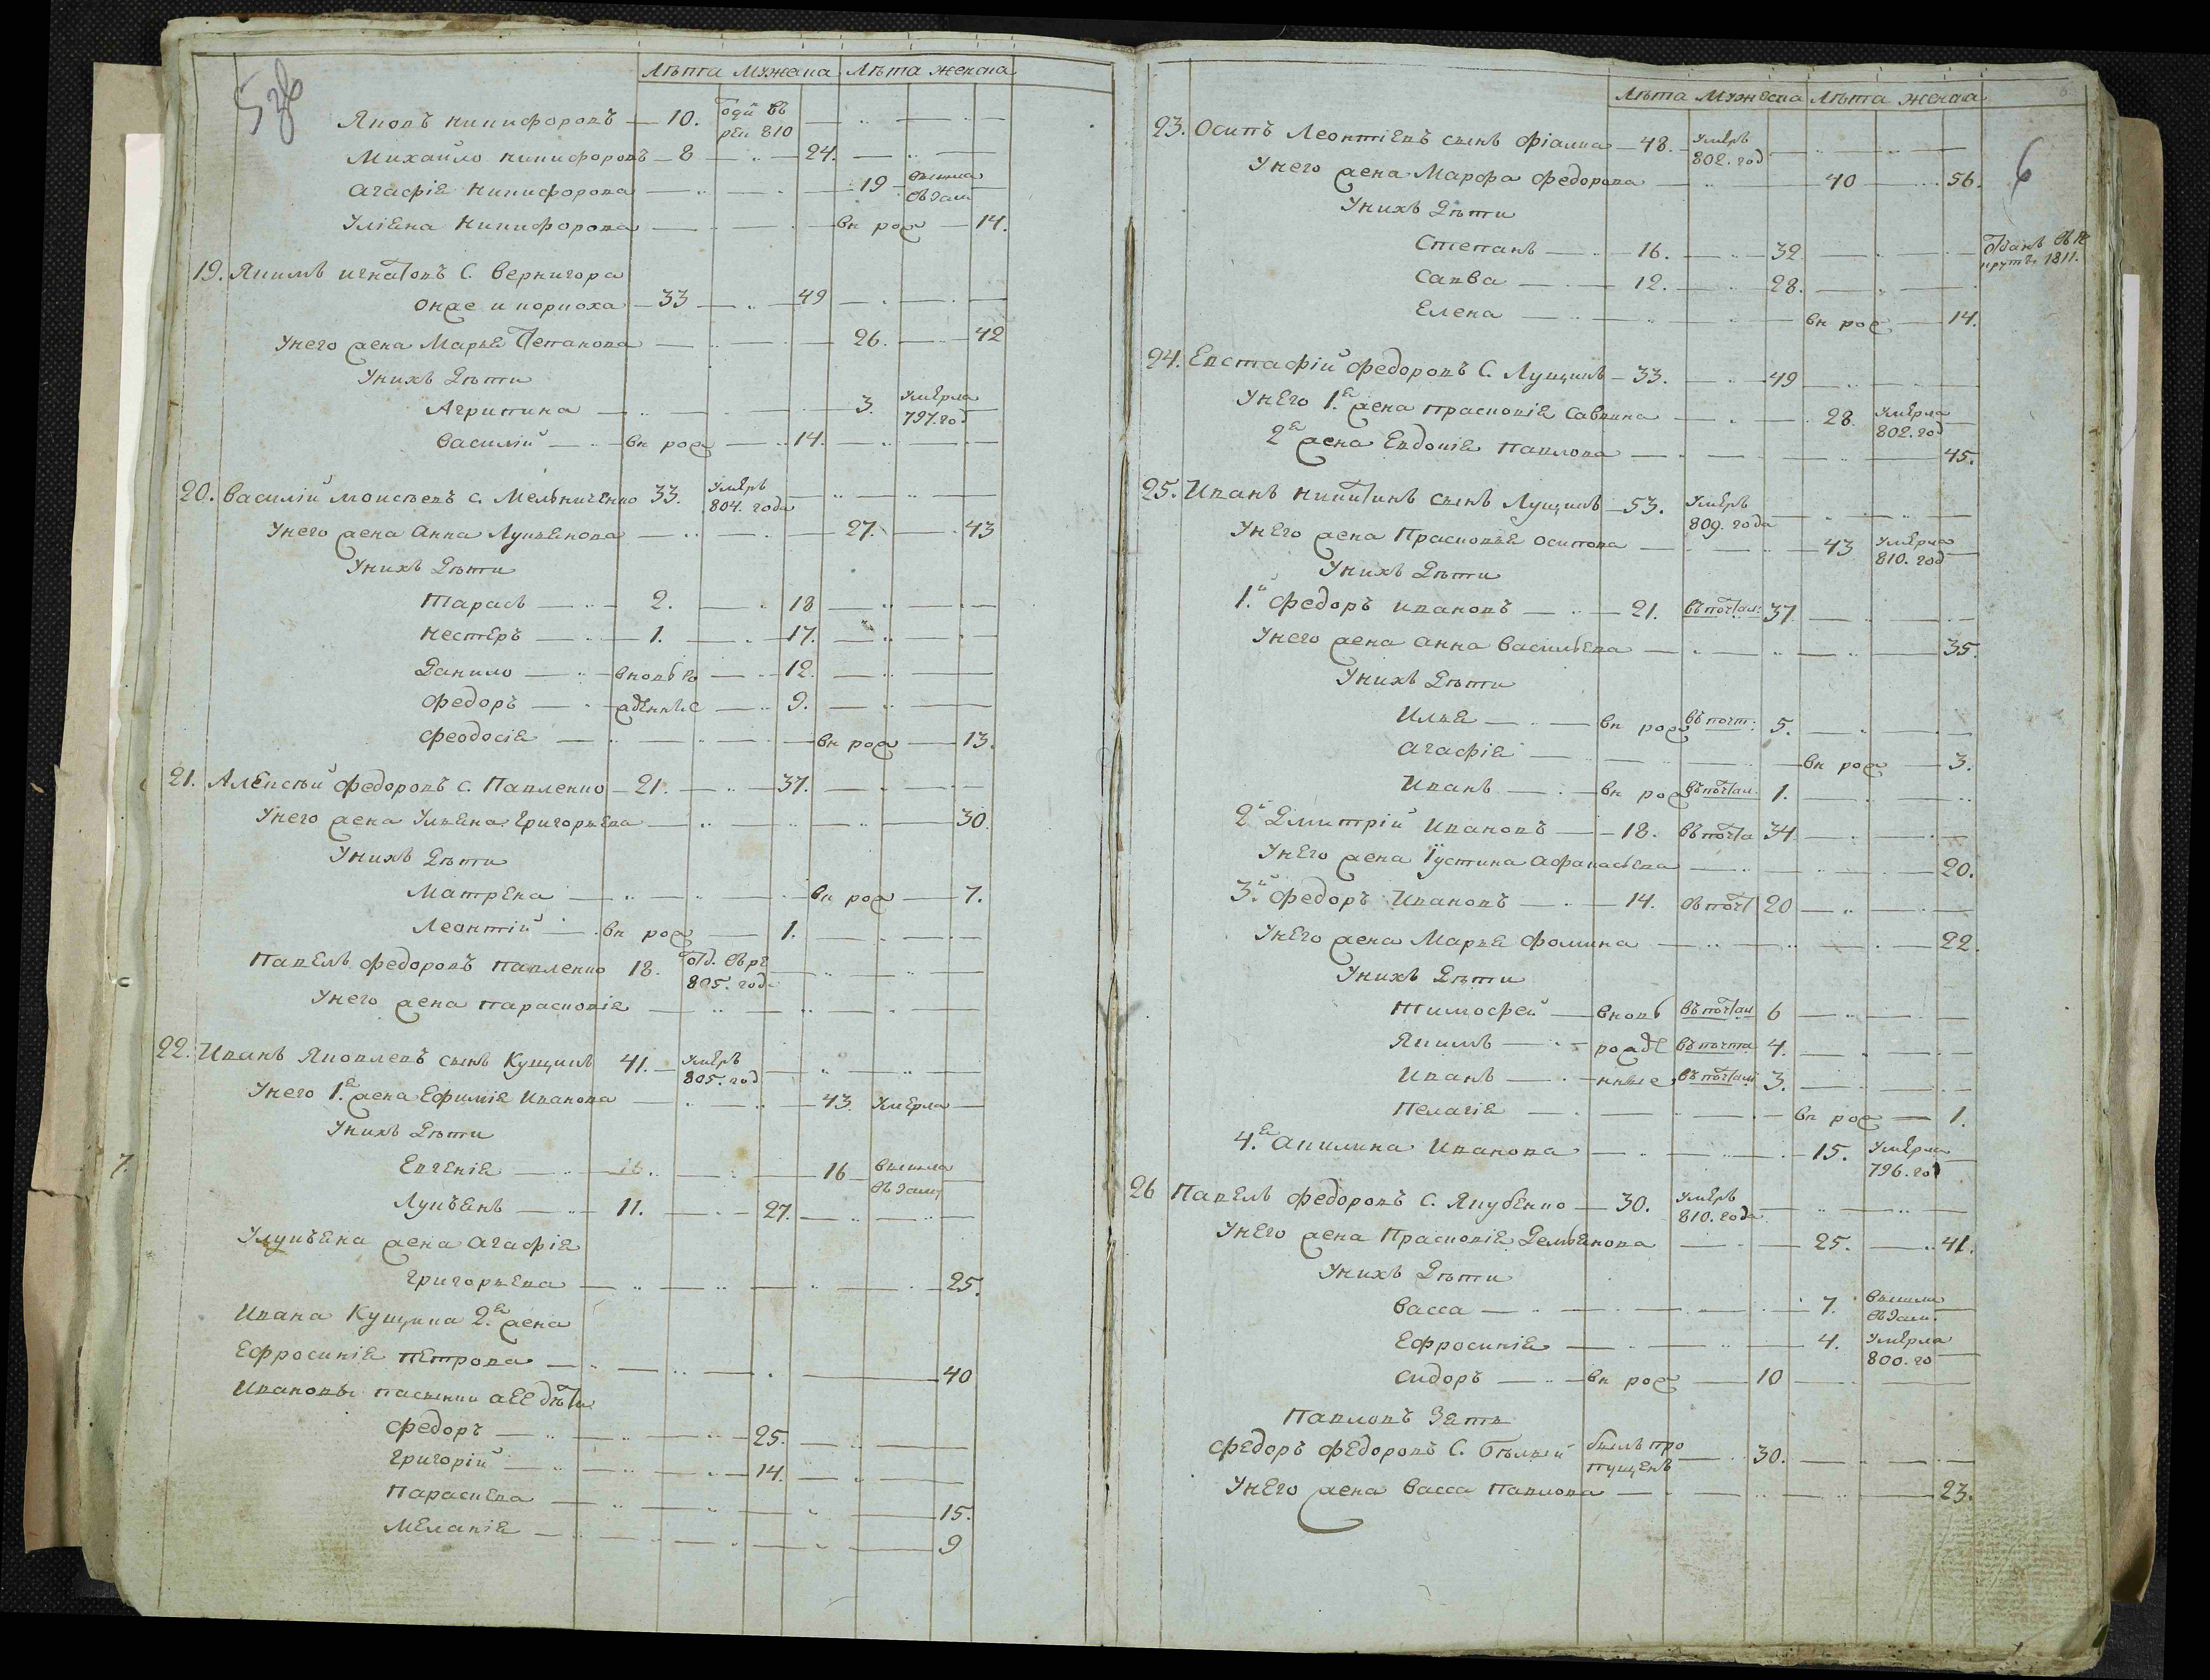 Лѣта Мужеска Лѣта Женска
Яковъ Никифоровъ 10. рек 810
Михайло Никифоровъ 8 24.
Агафія Никифорова 19 вышла взам
Уліяна Никифорова вн рож 14.
19. Якимъ Игнатовъ С. Вернигора
онже и 33 49
Унего жена Марья Степанова 26. 42
Унихъ дѣти
Агрипина 3. умерла 797. год
Василій вн рож 14.
20. Василій Моисѣевъ С. Мельниченко 33. умеръ 804. года
Унего жена Анна Лукьянова 27. 43
Унихъ дѣти
Тарасъ 2. 18
Нестеръ 1. 17.
Данило вновь ро 12.
Федоръ жденные 9.
Феодосія вн рож 13.
21. Алексѣй Федоровъ С. Павленко 21. 37.
Унего жена Ульяна Григорьева 30.
Унихъ дѣти
Матрена вн рож 7.
Леонтій вн рож 1.
Павелъ Федоровъ Павленко 18. отд. врек 805. года
Унего жена Парасковія
22. Иванъ Яковлевъ сынъ Кущинъ 41. умеръ 805. год
Унего 1.я жена Ефимія Иванова 43. умерла
Унихъ дѣти
Евгенія 16 вышла взам
Лукъянъ 11. 27.
Улукъяна жена Агафія
Григорьева 25.
Ивана Кущина 2.я жена
Ефросинія Петрова 40
Ивановы пасынки а ее дѣти
Федоръ 25.
Григорій 14.
Параскева 15.
Меланія 9
7.
6
Лѣта Мужеска Лѣта Женска
23. Осипъ Леонтіевъ сынъ Фіалка 48. умеръ 802. год
Унего жена Марфа Федорова 40 56.
Унихъ дѣти
Степанъ 16. 32. отданъ врекрутъ 1811.
Савва 12. 28.
Елена вн рож 14.
24. Евстафій Федоровъ С. Лущикъ 33. 49
Унего 1.я жена Прасковія Саввина 28. умерла 802. год
2я жена Евдокія Павлова 45.
25. Иванъ Никитинъ сынъ Лущикъ 53. умеръ 809. года
Унего жена Прасковья Осипова 43 умерла 810. год
Унихъ дѣти
1.й Федоръ Ивановъ 21. въ почтам: 37.
Унего жена Анна Васильева 35.
Унихъ дѣти
Илья вн рож въ почт: 5.
Агафія вн рож 3.
Иванъ вн рож въ почтам. 1.
2й Дмитрій Ивановъ 18. въ почта 34.
Унего жена Іустина Афанасьева 20.
3.й Федоръ Ивановъ 14. въ почт 20
Унего жена Марья Фомина 22.
Унихъ дѣти
Тимофей вновь въ почтам 6
Якимъ рожде въ почта 4.
Иванъ нные въ почтам 3.
Пелагія вн рож 1.
4.я Акилина Иванова 15. умерла 796. год
26 Павелъ Федоровъ С. Якубенко 30. умеръ 810. года
Унего жена Прасковія Демьянова 25. 41.
Унихъ дѣти
Васса 7. вышла взам.
Ефросинія 4. умерла 800. го
Сидоръ вн рож 10
Павловъ зять
Федоръ Федоровъ С. Бѣлый былъ пропущенъ 30.
Унего жена Васса Павлова 23.